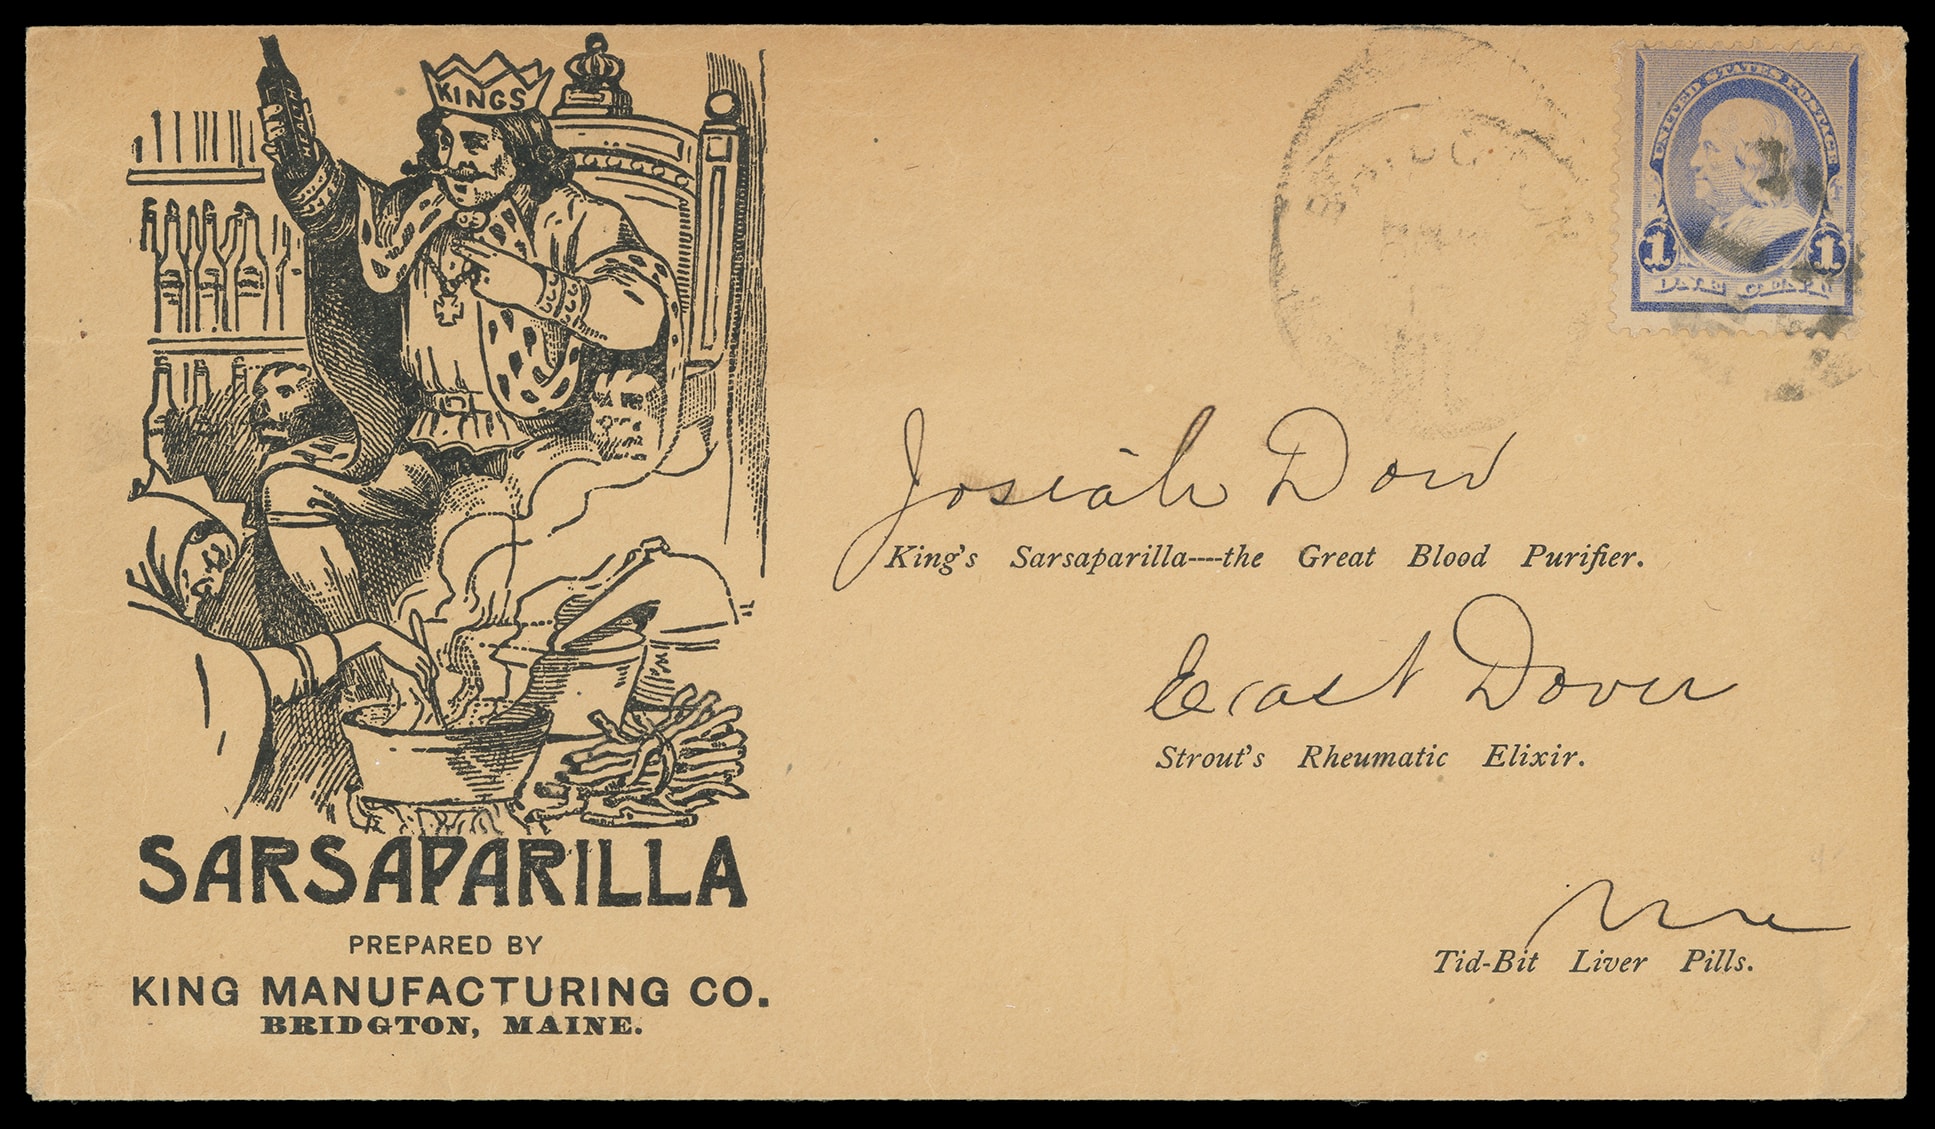 KINGS
HEALTH
SARSAPARILLA
PREPARED BY
KING MANUFACTURING CO.
BRIDGTON, MAINE.
BRIDGTON
UNITED STATES POSTAGE
1 1
ONE CENT
Josiah Dow
King's Sarsaparilla----the Great Blood Purifier.
East Dover
Strout's Rheumatic Elixir.
Me
Tid-Bit Liver Pills.